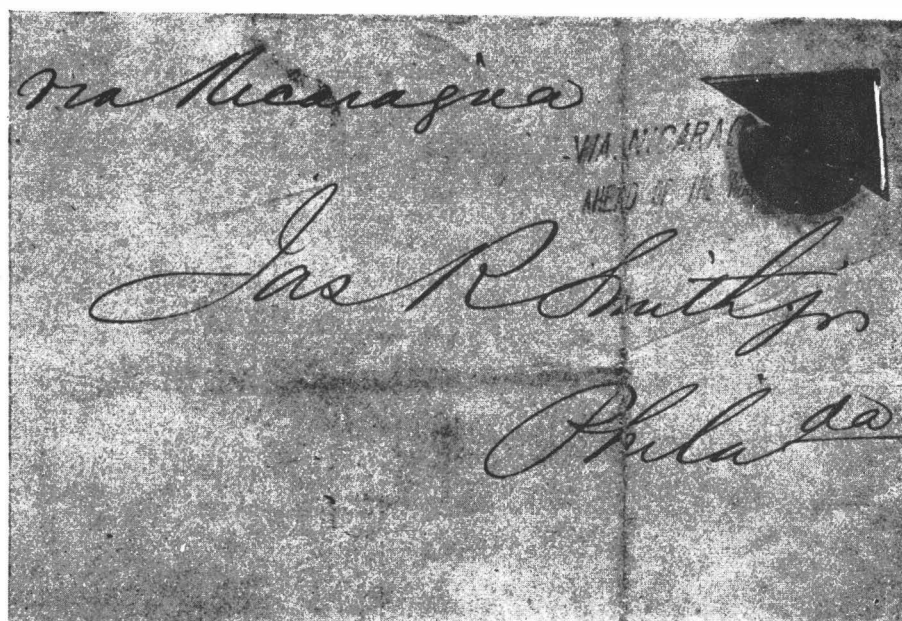 via Nicaragua
VIA. NICARA
AHEAD OF THE
Jas R Smith Jr
Phila da